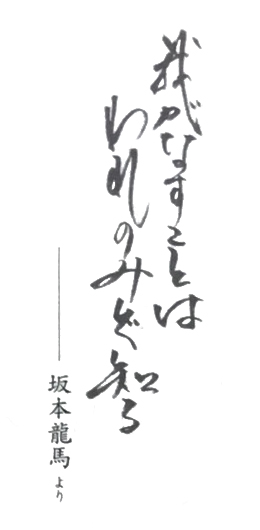 我がなすことは
われのみぞ知る
――坂本龍馬より